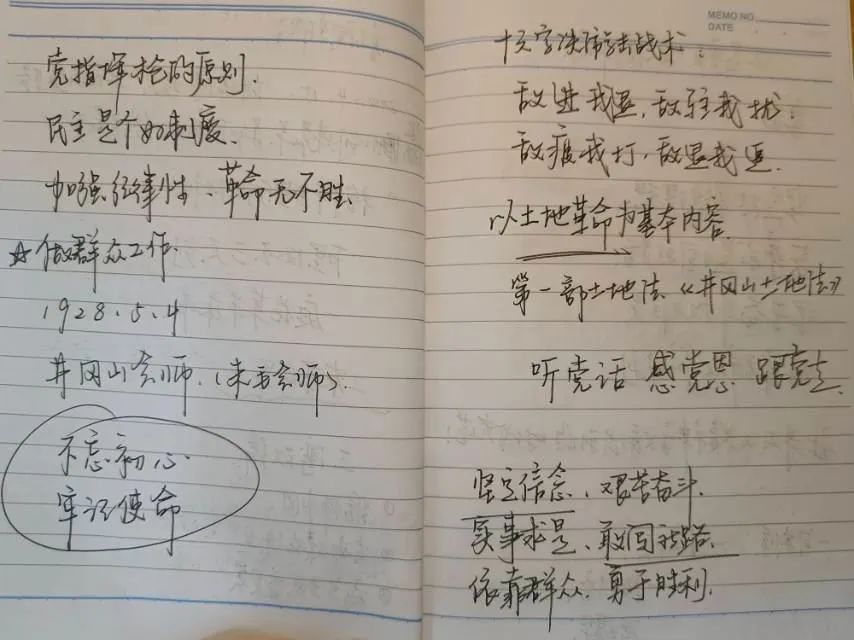 党指挥枪的原则.
民主是个好制度.
加强纪律性、革命无不胜.
☆做群众工作.
1928.5.4
井冈山会师.(朱毛会师).
不忘初心
牢记使命
MEMO NO.
DATE
十六字诀游击战术:
敌进我退,敌驻我扰.
敌疲我打,敌退我追.
以土地革命为基本内容.
第一部土地法《井冈山土地法》
听党话 感党恩 跟党走.
坚定信念、艰苦奋斗.
实事求是、敢闯新路.
依靠群众、勇于胜利.